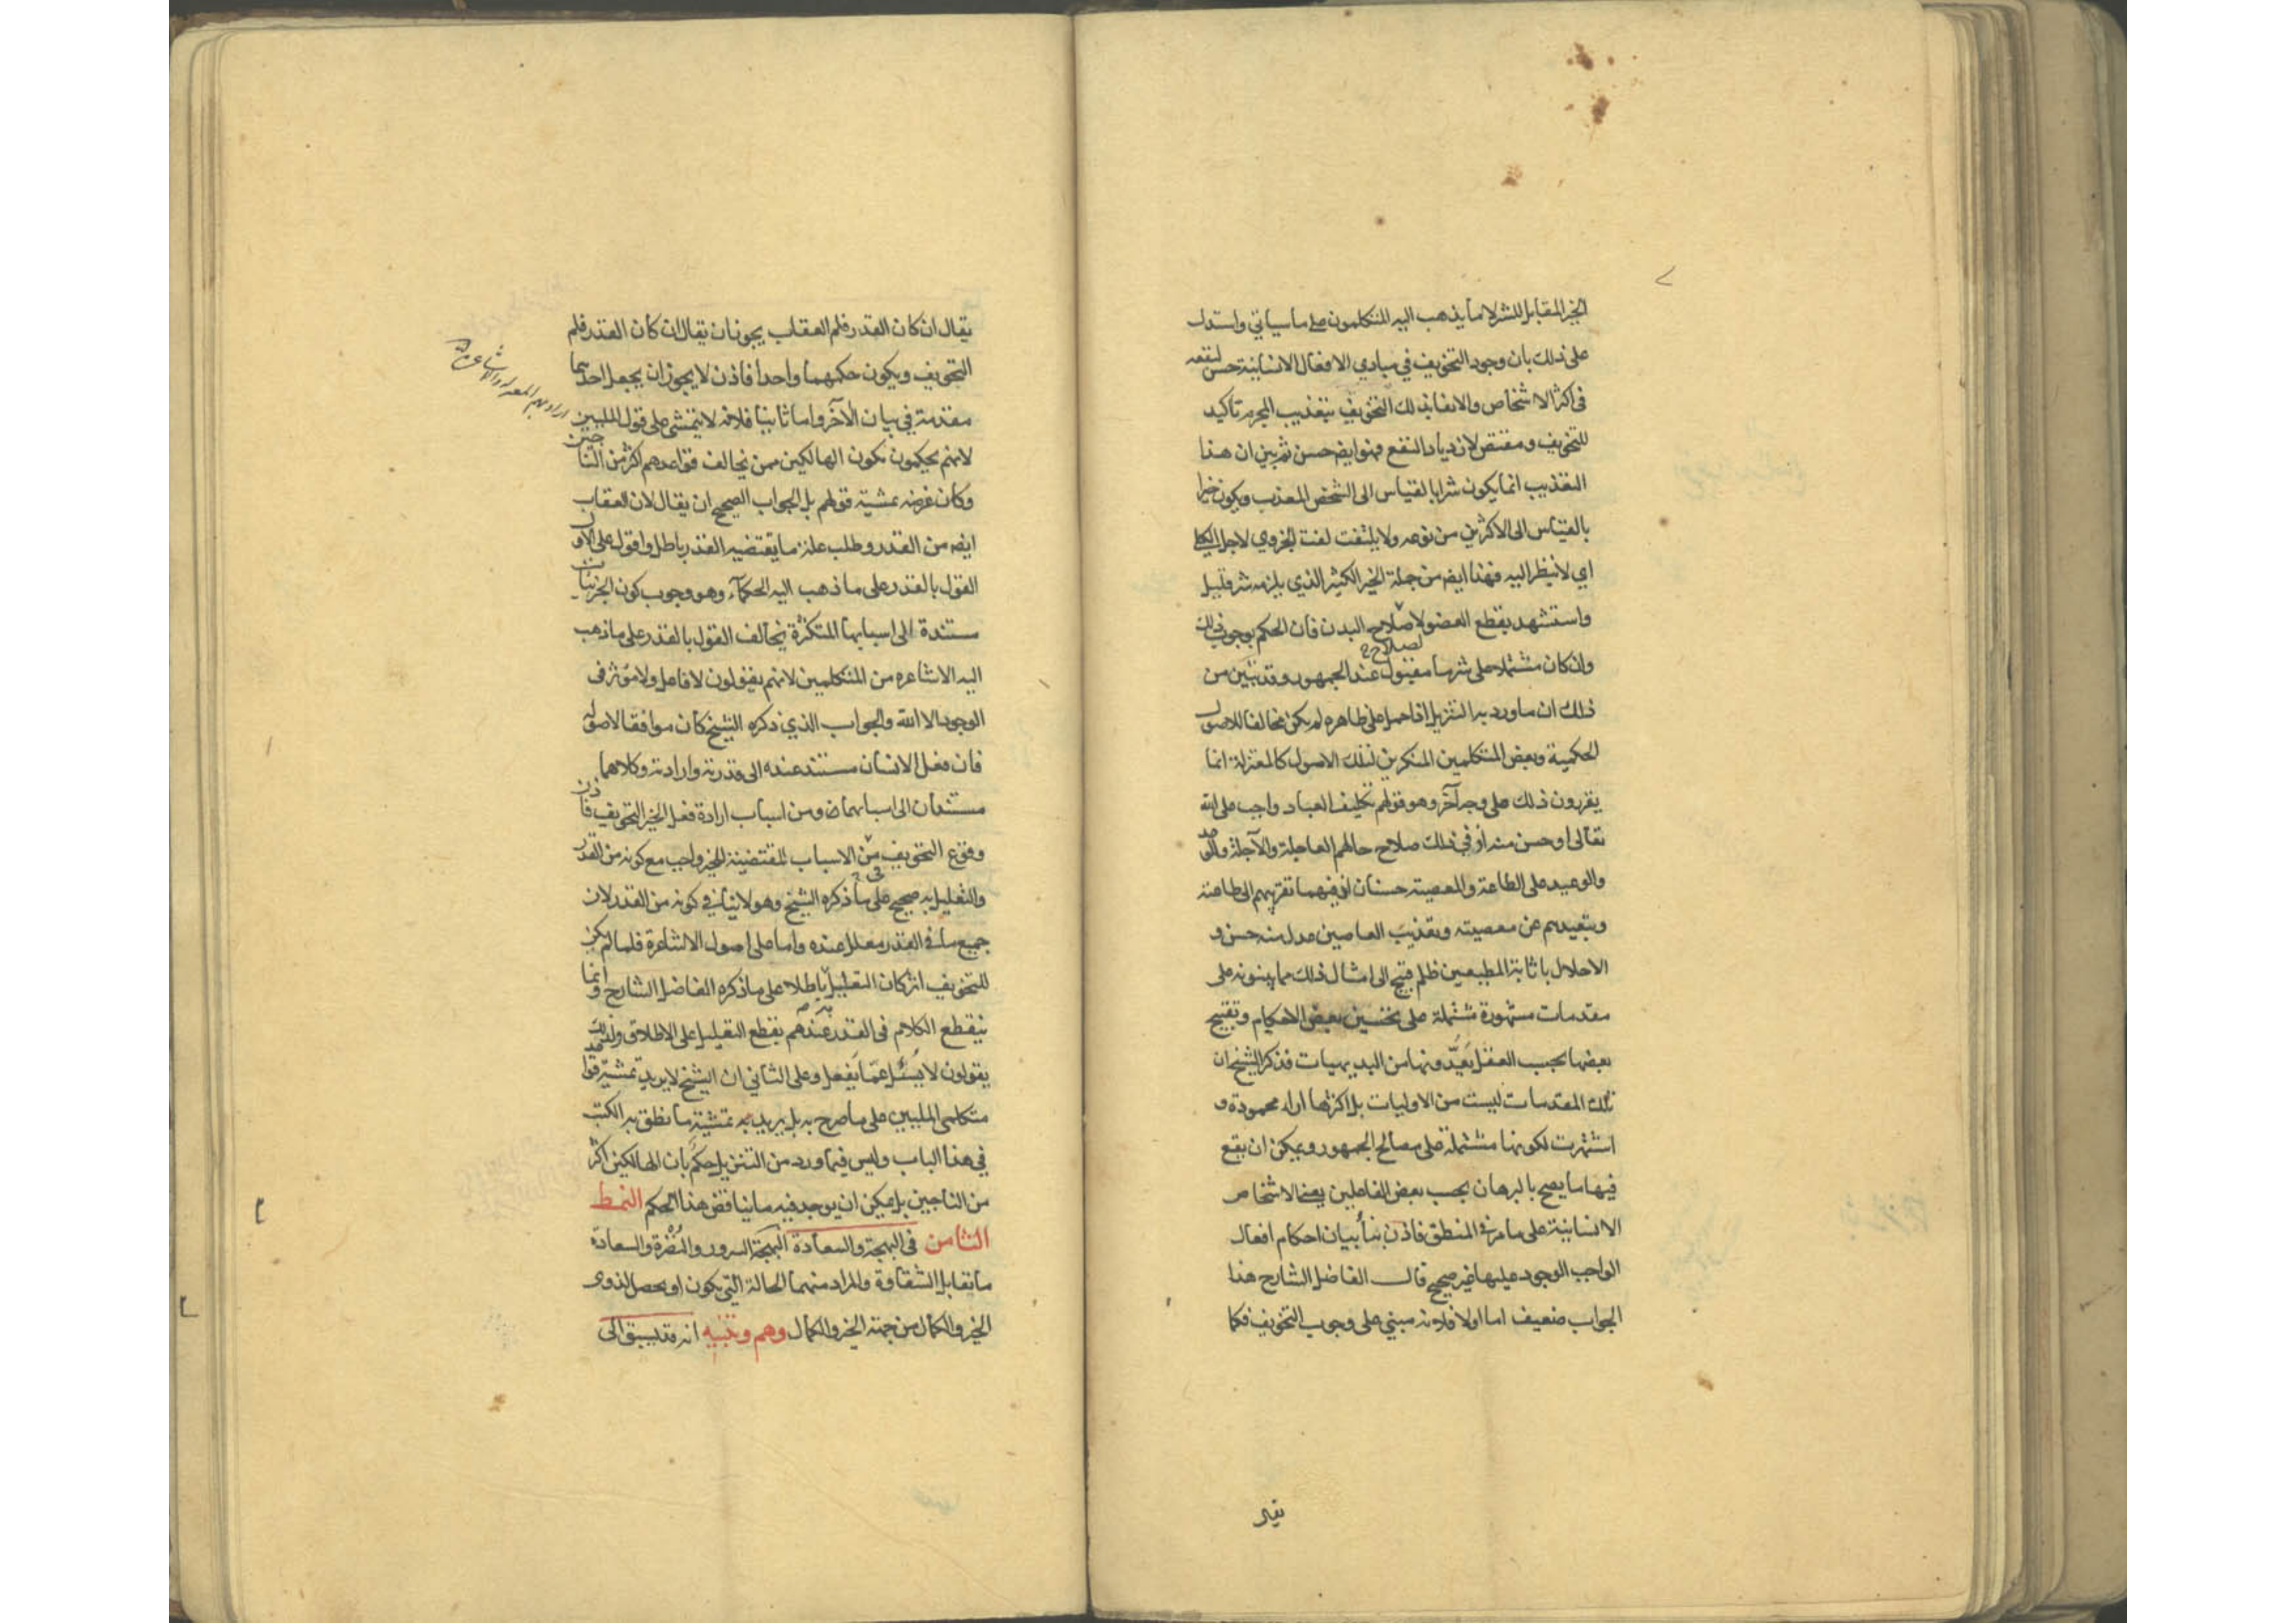 الخير المقابل للشر لا ما يذهب اليه المتكلمون على ما سياتي واستدل
على ذلك بان وجود التخويف في مبادي الافعال الانسانية حسن لنفعه
فى اكثر الاشخاص والايفا بذلك التخويف بتعذيب المجرم تاكيد
للتخويف ومقتض لازدياد النفع فهو ايضه حسن ثم بين ان هذا
التعذيب انما يكون شرا بالقياس الى الشخص المعذب ويكون خيرا
بالقياس الى الاكثرين من نوعه ولا يلتفت لفت الجزوي لاجل الكلي
اي لا ينظر اليه فهذا ايضه من جملة الخير الكثير الذي يلزمه شر قليل
واستشهد بقطع العضو لاصلاح البدن فان الحكم بوجوب ذلك
لصلاح
وان كان مشتملا على شر ما مقبول عند الجمهور وقد تبين من
ذلك ان ما ورد به التنزيل اذا حمل على ظاهره لم يكن مخالفا للاصول
الحكمية وبعض المتكلمين المنكرين لتلك الاصول كالمعتزلة انما
يقررون ذلك على وجه آخر وهو قولهم تكليف العباد واجب على الله
تعالى او حسن منه اذ في ذلك صلاح حالهم العاجلة والآجلة والوعد
والوعيد على الطاعة والمعصية حسنان اذ فيهما تقريبهم الى طاعته
وتبعيدهم عن معصيته وتعذيب العاصين عدل منه حسن و
الاخلال باثابة المطيعين ظلم قبيح الى امثال ذلك مما يبنونه على
مقدمات مشهورة مشتملة على تحسين بعض الاحكام وتقبيح
بعضها بحسب العقل يعدّونها من البديهيات فذكر الشيخ ان
تلك المقدمات ليست من الاوليات بل اكثرها اراء محمودة و
اشتهرت لكونها مشتملة على مصالح الجمهور ويمكن ان يقع
فيها ما يصح بالبرهان بحسب بعض الفاعلين يعنى الاشخاص
الانسانية على ما مر فى المنطق فاذن بناء بيان احكام افعال
الواجب الوجود عليها غير صحيح قال الفاضل الشارح هذا
الجواب ضعيف اما اولا فلانه مبني على وجوب التخويف فكما
يقال ان كان القدر فلم العقاب يجوز ان يقال ان كان القدر فلم
التخويف ويكون حكمهما واحدا فاذن لا يجوز ان يجعل احدهما
مقدمة في بيان الآخر واما ثانيا فلانه لا يتمشى على قول المليين
لانهم يحكمون بكون الهالكين ممن يخالف قواعدهم اكثر من الناجين
وكان غرضه تمشية قولهم بل الجواب الصحيح ان يقال لان العقاب
ايضه من القدر وطلب علة ما يقتضيه القدر باطل واقول على الاول
القول بالقدر على ما ذهب اليه الحكمآء وهو وجوب كون الجزئيات
مستندة الى اسبابها المتكثرة يخالف القول بالقدر على ما ذهب
اليه الاشاعره من المتكلمين لانهم يقولون لا فاعل ولا مؤثر فى
الوجود الا الله والجواب الذي ذكره الشيخ كان موافقا لاصوله
فان فعل الانسان مستند عنده الى قدرته وارادته وكلاهما
مستندان الى اسبابهما ومن اسباب ارادة فعل الخير التخويف فاذن
وقوع التخويف من الاسباب المقتضية للخير واجب مع كونه من القدر
والتعليل به صحيح على ما ذكره الشيخ وهو لا ينافي كونه من القدر لان
جميع ما فى القدر معلل عنده واما على اصول الاشاعرة فلما لم يكن
للتخويف اثر كان التعليل باطلا على ما ذكره الفاضل الشارح وانما
ينقطع الكلام فى القدر عندهم بقطع التعليل على الاطلاق ولذلك
يقولون لا يُسئل عمّا يفعل وعلى الثاني ان الشيخ لا يريد تمشية قواعد
متكلمى المليين على ما صرح به بل يريد به تمشية ما نطق به الكتب
في هذا الباب وليس فيما ورد من التنزيل حكم بان الهالكين اكثر
من الناجين بل يمكن ان يوجد فيه ما يناقض هذا الحكم النمط
الثامن فى البهجة والسعادة البهجة السرور والنُضْرة والسعادة
ما تقابل الشقاوة والمراد منهما الحالة التي تكون او تحصل لذوى
الخير والكمال من جهة الخير والكمال وهم وتنبيه انه قد يسبق الى